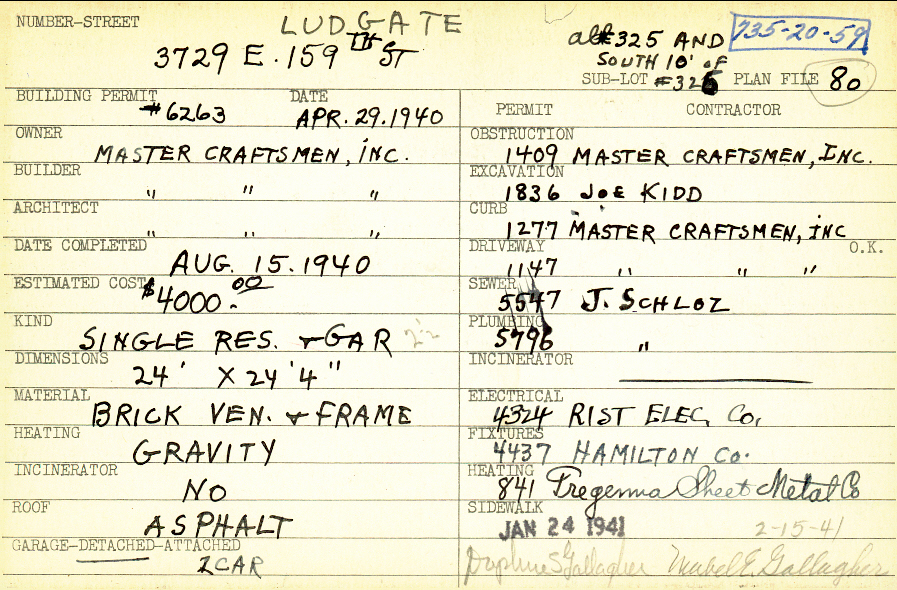 NUMBER-STREET
LUDGATE
3729 E. 159TH ST
#325 AND
735-20-59
SOUTH 10' OF
SUB-LOT #326 PLAN FILE 80
BUILDING PERMIT
#6263
DATE
APR. 29. 1940
OWNER
MASTER CRAFTSMEN, INC.
BUILDER
" " "
ARCHITECT
" " "
DATE COMPLETED
AUG. 15. 1940
ESTIMATED COST
$4000.00
KIND
SINGLE RES. & GAR
DIMENSIONS
24' X 24'4"
MATERIAL
BRICK VEN. & FRAME
HEATING
GRAVITY
INCINERATOR
NO
ROOF
ASPHALT
GARAGE-DETACHED-ATTACHED
2 CAR
PERMIT CONTRACTOR
OBSTRUCTION
1409 MASTER CRAFTSMEN, INC.
EXCAVATION
1836 JOE KIDD
CURB
1277 MASTER CRAFTSMEN, INC
DRIVEWAY O.K.
1147 " " "
SEWER
5547 J. SCHLOZ
PLUMBING
5796 "
INCINERATOR
ELECTRICAL
4324 RIST ELEC. CO.
FIXTURES
4437 HAMILTON CO.
HEATING
841 Tregenna Sheet Metal Co
SIDEWALK
JAN 24 1941
2-15-41
Daphne S Gallagher Mabel E. Gallagher